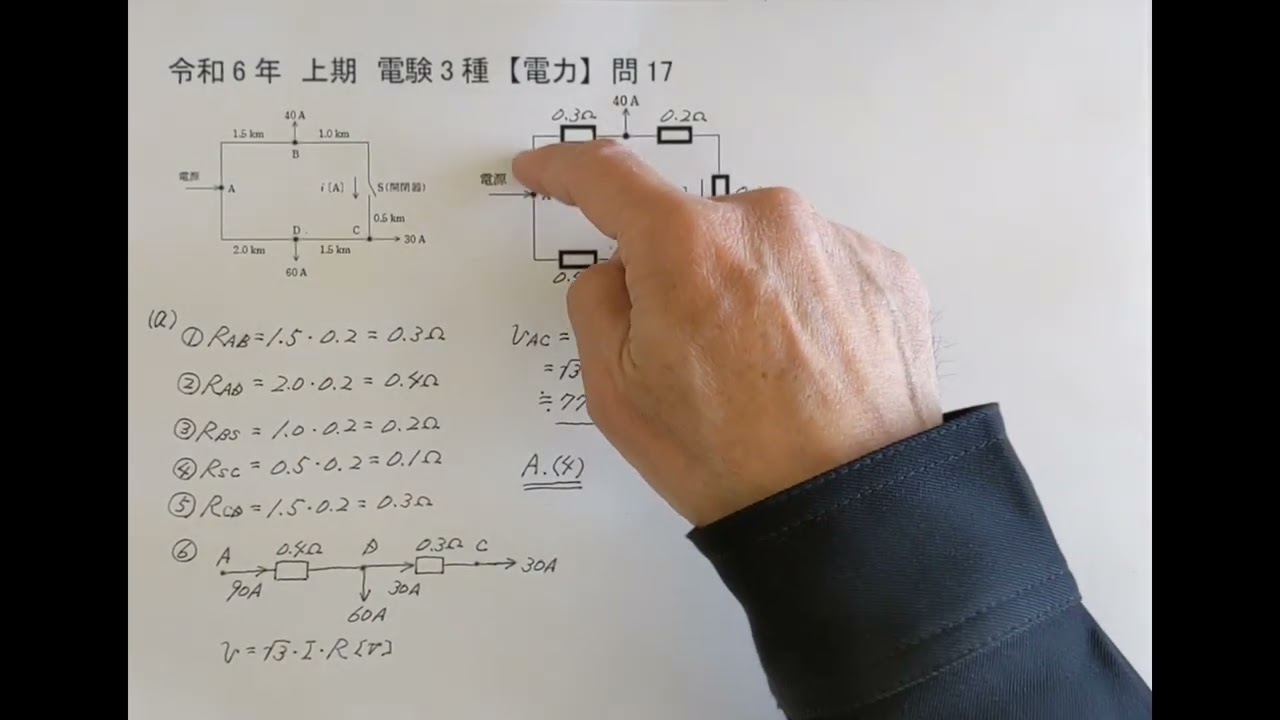 令和6年 上期 電験3種【電力】問17
40A
1.5 km 1.0 km
B
電源
A
i [A]
S(開閉器)
0.5 km
D
C
30 A
2.0 km 1.5 km
60 A
40 A
0.3Ω 0.2Ω
電源
(a)
① RAB = 1.5・0.2 = 0.3Ω
② RAD = 2.0・0.2 = 0.4Ω
③ RBS = 1.0・0.2 = 0.2Ω
④ RSC = 0.5・0.2 = 0.1Ω
⑤ RCD = 1.5・0.2 = 0.3Ω
⑥ A 0.4Ω D 0.3Ω C 30A
90A 30A
60A
v = √3・I・R [V]
VAC =
= √3
≒ 77
A. (4)